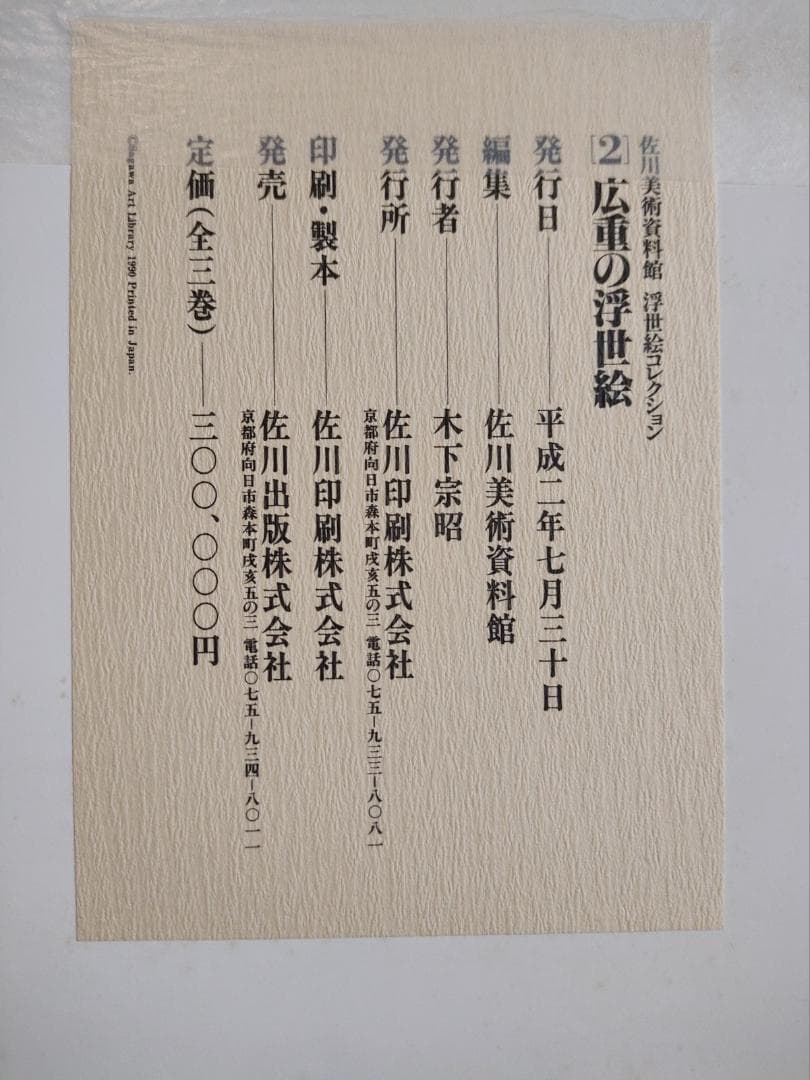 佐川美術資料館 浮世絵コレクション
[2]広重の浮世絵
発行日――平成二年七月三十日
編集――佐川美術資料館
発行者――木下宗昭
発行所――佐川印刷株式会社
京都府向日市森本町戌亥五の三 電話〇七五−九三三−八〇八一
印刷・製本――佐川印刷株式会社
発売――佐川出版株式会社
京都府向日市森本町戌亥五の三 電話〇七五−九三四−八〇一一
定価(全三巻)――三〇〇、〇〇〇円
©Sagawa Art Library 1990 Printed in Japan.